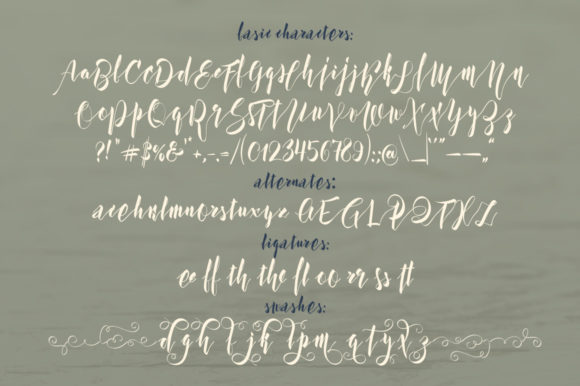 basic characters:
AaBbCcDdEeFfGgHhIiJjKkLlMmNn
OoPpQqRrSsTtUuVvWwXxYyZz
?!"#$%&'*+,-.=/(0123456789):;@\_|`'"—–„
alternates:
acehnlmnorstuxyz AEGLPQTXL
ligatures:
ee ff th the fl oo rr ss tt
swashes:
dgh ljk lpm qtyxz